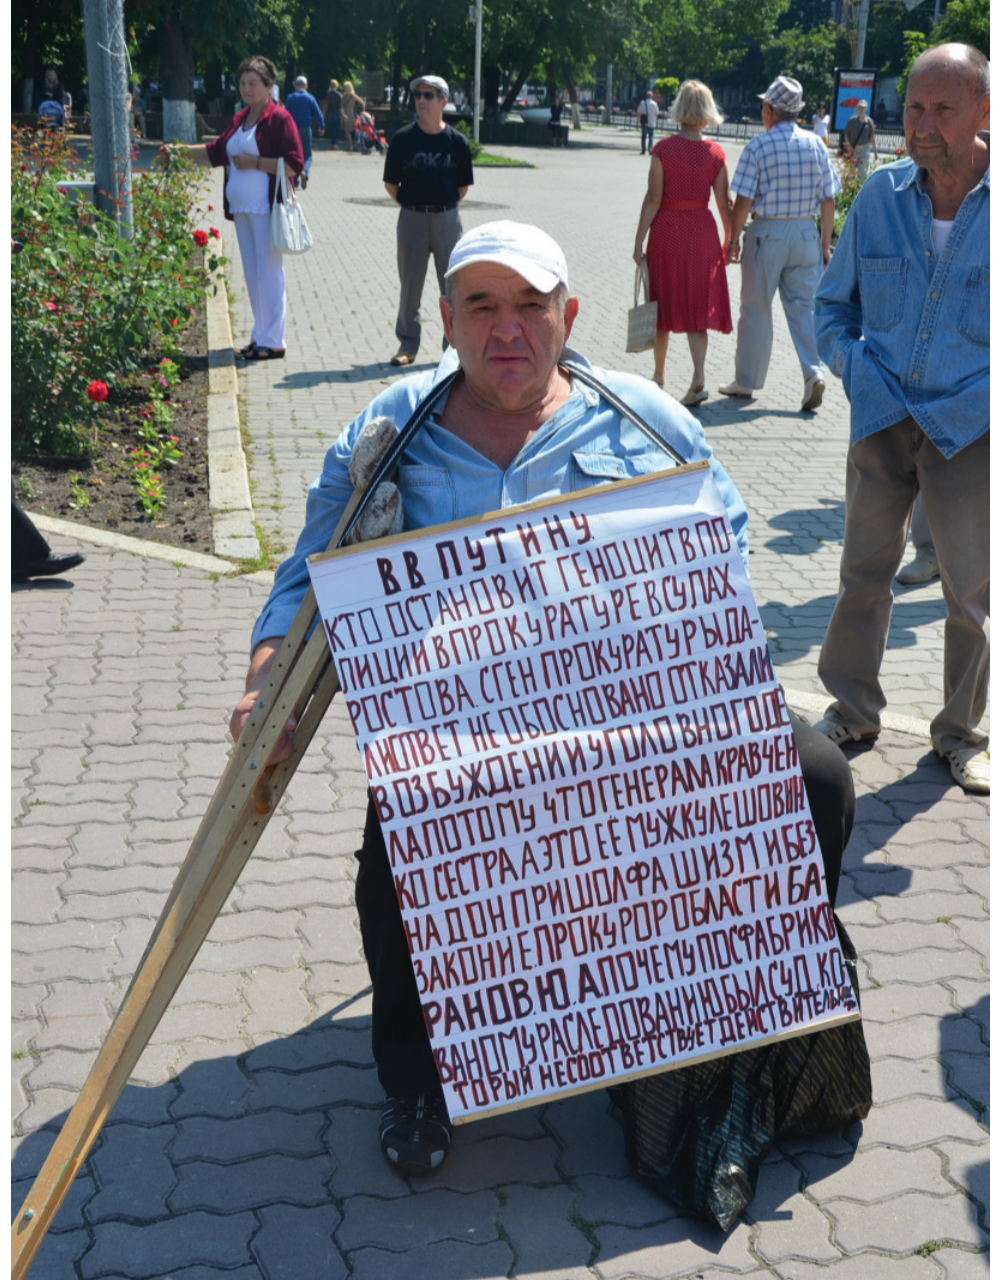 В В ПУТИНУ.
КТО ОСТАНОВИТ ГЕНОЦИТ В ПО
ЛИЦИИ В ПРОКУРАТУРЕ В СУДАХ
РОСТОВА. С ГЕН ПРОКУРАТУРЫ ДА-
ЛИ ОТВЕТ НЕ ОБОСНОВАНО ОТКАЗАЛИ
В ОЗБУЖДЕНИИ УГОЛОВНОГО ДЕ
ЛА.ПОТОМУ ЧТО ГЕНЕРАЛА КРАВЧЕН
КО СЕСТРА А ЭТО ЕЁ МУЖ КУЛЕШОВ И Н
НА ДОН ПРИШОЛ ФАШИЗМ И БЕЗ-
ЗАКОНИЕ.ПРОКУРОР ОБЛАСТИ БА-
РАНОВ.Ю.А ПОЧЕМУ ПОСФАБРИКО
ВАНОМУ РАСЛЕДОВАНИЮ БЫЛ СУД. КО-
ТОРЫЙ НЕ СООТВЕТСТВУЕТ ДЕЙСТВИТЕЛЬ